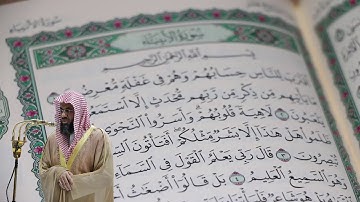 سُورَةُ الأَنبِيَاءِ
سُورَةُ الأَنبِيَاءِ
بِسْمِ اللَّهِ الرَّحْمَٰنِ الرَّحِيمِ
اقْتَرَبَ لِلنَّاسِ حِسَابُهُمْ وَهُمْ فِي غَفْلَةٍ مُّعْرِضُونَ
مَا يَأْتِيهِم مِّن ذِكْرٍ مِّن رَّبِّهِم مُّحْدَثٍ إِلَّا
قُلُوبُهُمْ وَأَسَرُّوا النَّجْوَى
ظَلَمُوا هَلْ هَٰذَا إِلَّا بَشَرٌ مِّثْلُكُمْ أَفَتَأْتُونَ
تُبْصِرُونَ ٣ قَالَ رَبِّي يَعْلَمُ الْقَوْلَ فِي السَّمَاءِ
وَهُوَ السَّمِيعُ الْعَلِيمُ ٤ بَلْ قَالُوا أَضْغَاثُ